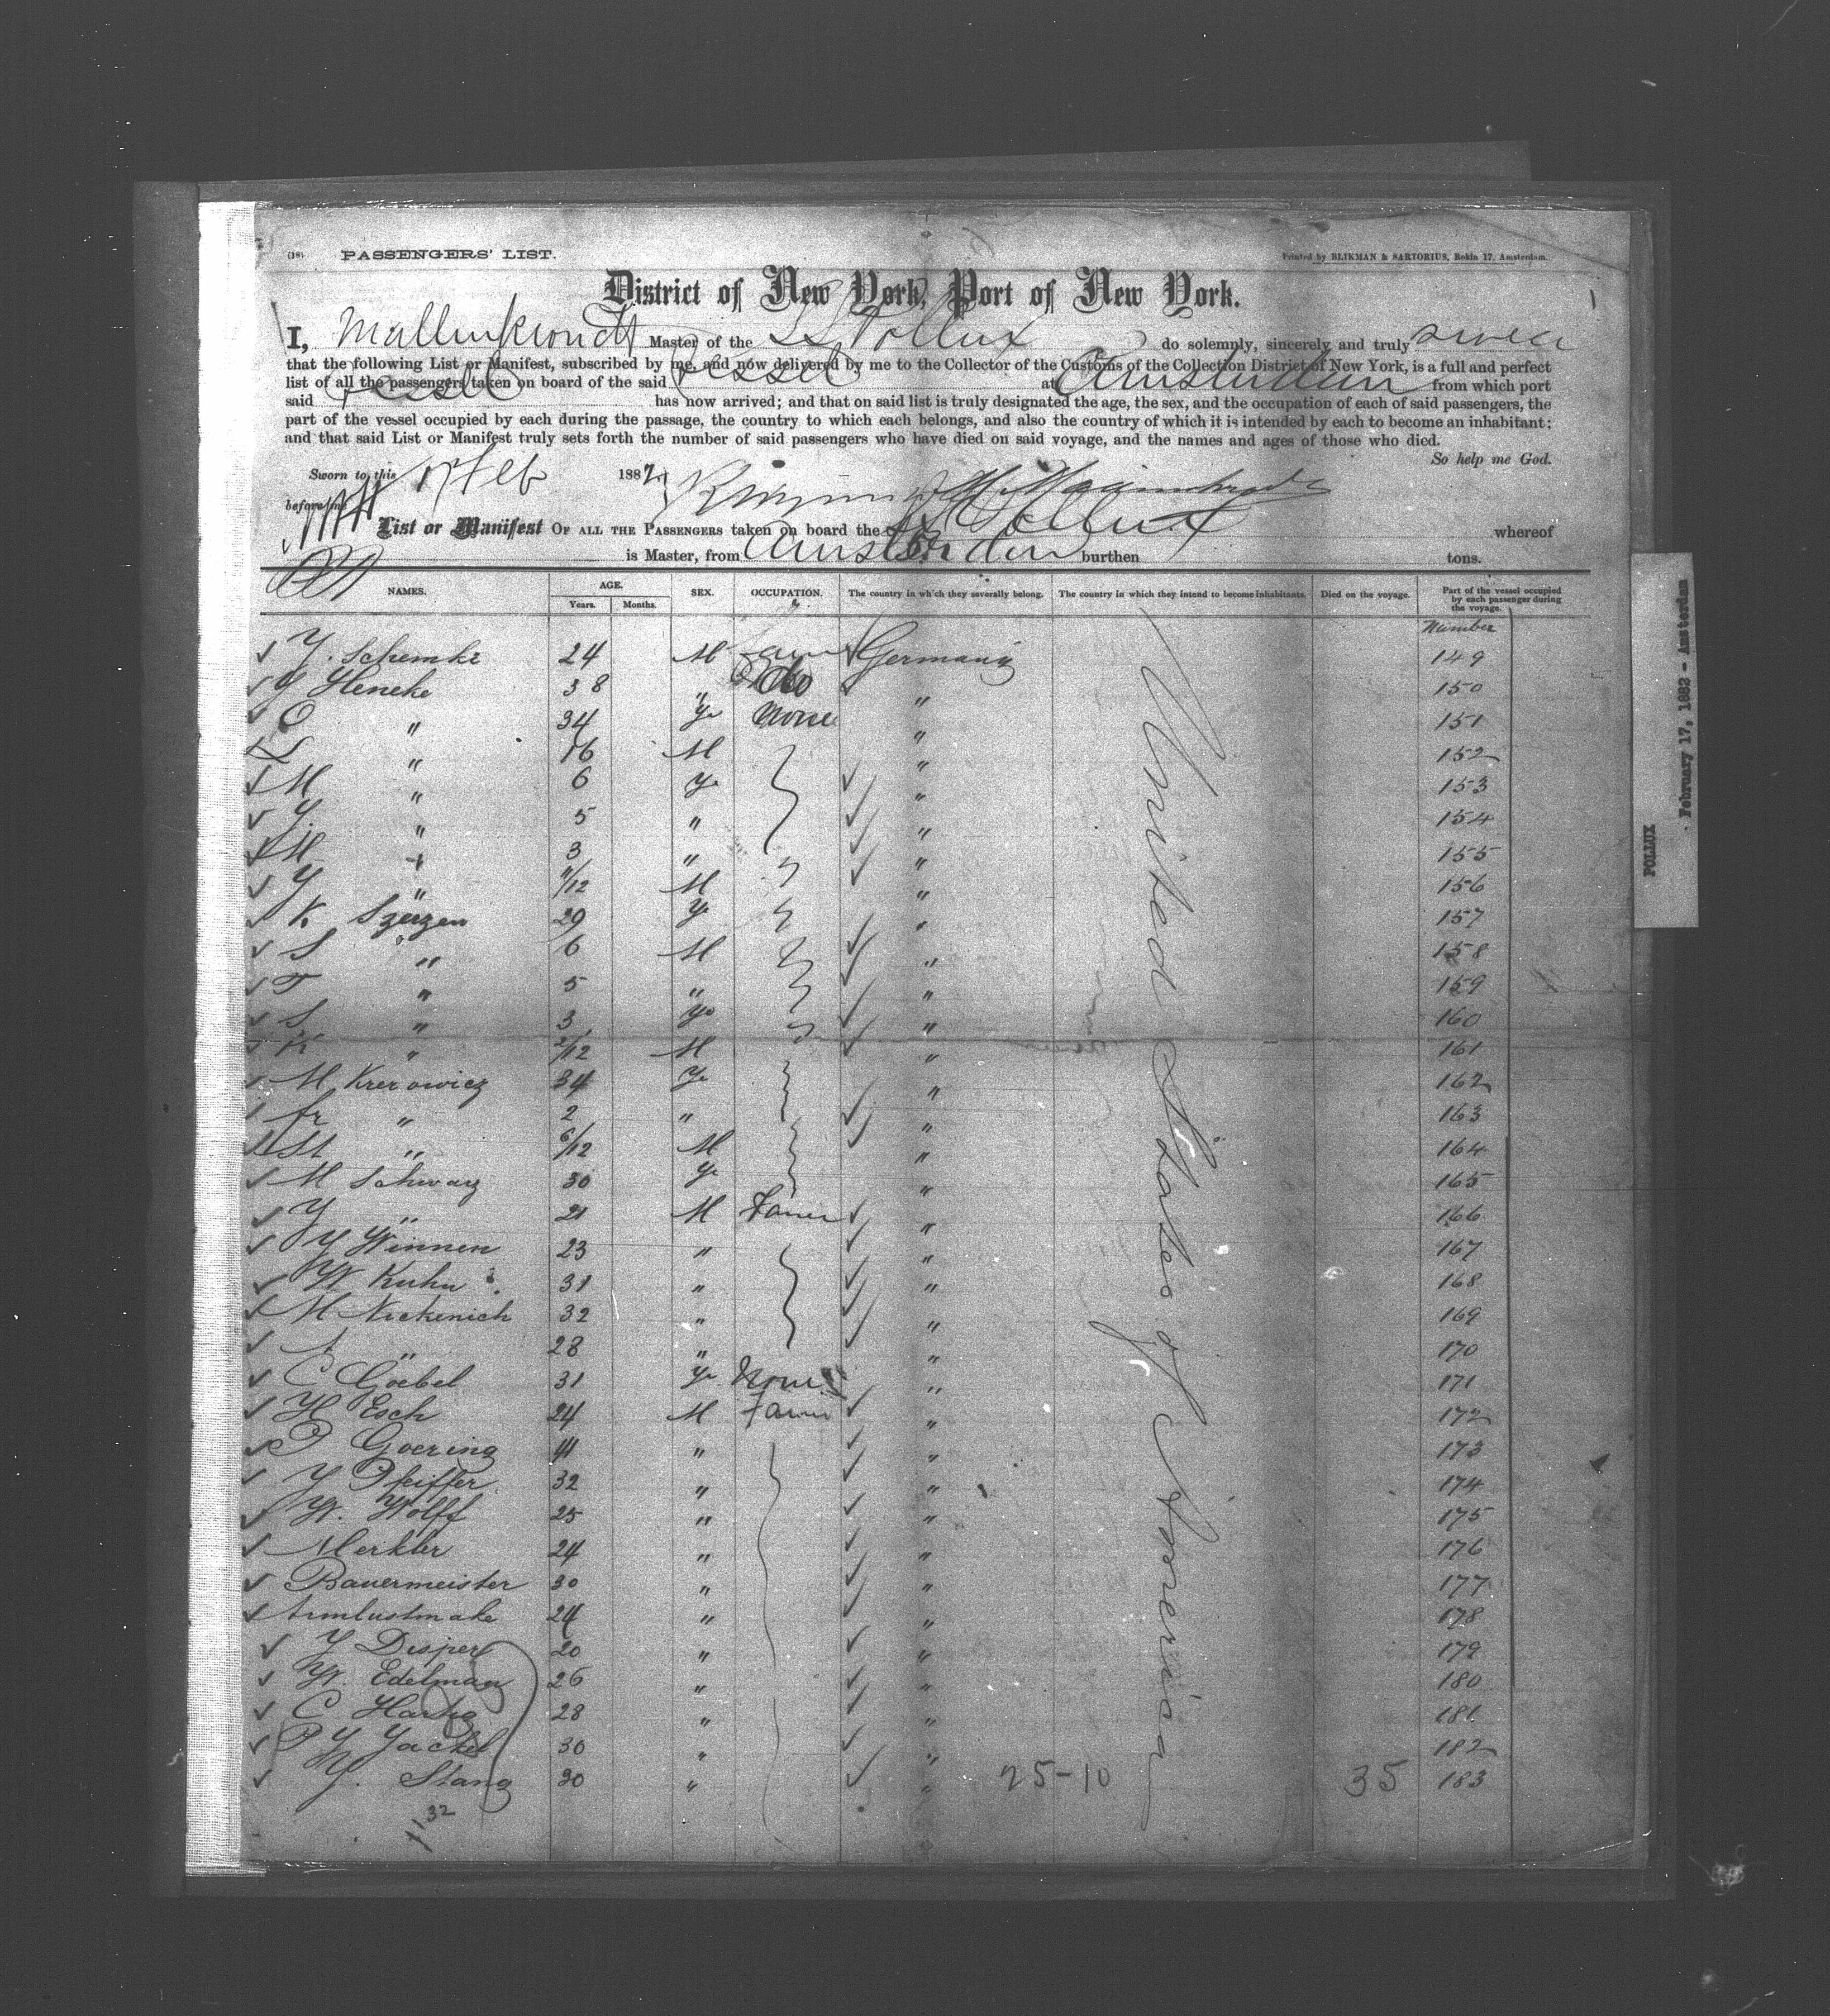 (18) PASSENGERS' LIST. Printed by BLIKMAN & SARTORIUS, Rokin 17, Amsterdam.
District of New York, Port of New York.
I, Master of the SS Pollux do solemnly, sincerely and truly swear
that the following List or Manifest, subscribed by me, and now delivered by me to the Collector of the Customs of the Collection District of New York, is a full and perfect
list of all the passengers taken on board of the said Vessel at Amsterdam from which port
said Vessel has now arrived; and that on said list is truly designated the age, the sex, and the occupation of each of said passengers, the
part of the vessel occupied by each during the passage, the country to which each belongs, and also the country of which it is intended by each to become an inhabitant;
and that said List or Manifest truly sets forth the number of said passengers who have died on said voyage, and the names and ages of those who died.
So help me God.
Sworn to this 17 Feb 1882
before me
List or Manifest OF ALL THE PASSENGERS taken on board the SS Pollux whereof
is Master, from Amsterdam burthen tons.
NAMES. AGE. Years. Months. SEX. OCCUPATION. The country in which they severally belong. The country in which they intend to become inhabitants. Died on the voyage. Part of the vessel occupied by each passenger during the voyage.
Number
Y. Schemke 24 M Germany 149
Y Heneke 38 " do " 150
C " 34 Fe None " 151
" 16 M " 152
M " 6 Fe " 153
Y " 5 " " 154
M " 3 " " 155
Y " 11/12 M " 156
K. Szerzen 29 Fe " 157
S " 6 M " 158
T " 5 " " 159
S " 3 Fe " 160
K " 2/12 M " 161
M Krerowicz 34 Fe " 162
Fr " 2 " " 163
St " 6/12 M " 164
M Schwarz 30 Fe " 165
Y " 21 M Farmer " 166
Y Winnen 23 " " 167
W Kuhn 31 " " 168
M Nickenich 32 " " 169
" 28 " " 170
C Goebel 31 Fe None " 171
H Esch 24 M Farm " 172
P Goering 41 " " 173
Y Pfeiffer 32 " " 174
W. Wolff 25 " " 175
Merkler 24 " " 176
Bauermeister 30 " " 177
24 " " 178
Y Disper 20 " " 179
W. Edelman 26 " " 180
C 28 " " 181
P Y Jackel 30 " " 182
Y. Stang 30 " " 25-10 35 183
32
United States of America
POLLUX
February 17, 1882 - Amsterdam